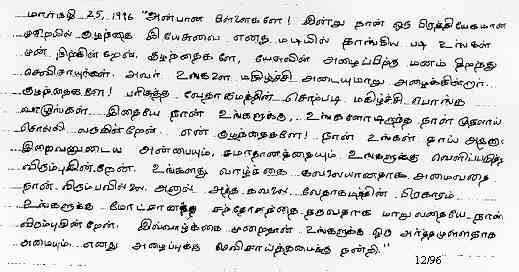 மார்கழி 25, 1996 "அன்பான பிள்ளைகளே! இன்று நான் ஒரு பிரத்தியேகமான
முறையில் குழந்தை இயேசுவை எனது மடியில் தாங்கிய படி உங்கள்
முன் நிற்கின்றேன். குழந்தைகளே, யேசுவின் அழைப்பிற்கு மனம் திறந்து
செவிசாயுங்கள். அவர் உங்களை மகிழ்ச்சி அடையுமாறு அழைக்கின்றார்.
குழந்தைகளே! பரிசுத்த வேதாகமத்தின் சொற்படி மகிழ்ச்சி பொங்க
வாழுங்கள். இதையே நான் உங்களுக்கு, உங்களோடிருந்த நாள் முதலாய்
சொல்லி வருகின்றேன். என் குழந்தைகளே! நான் உங்கள் தாய் ஆதலால்
இறைவனுடைய அன்பையும், சமாதானத்தையும் உங்களுக்கு வெளிப்படுத்த
விரும்புகின்றேன். உங்களது வாழ்க்கை கவலையானதாக அமைவதை
நான் விரும்பவில்லை. ஆனால் அந்த கவலை வேதாகமத்தின் பிரகாரம்
உங்களுக்கு மோட்சானந்த சந்தோசத்தை தருவதாக மாறுவதையே நான்
விரும்புகின்றேன். இவ்வாழ்க்கை முறைதான் உங்களுக்கு ஒரு அர்த்தமுள்ளதாக
அமையும். எனது அழைப்புக்கு செவிசாய்த்தமைக்கு நன்றி."
12/96